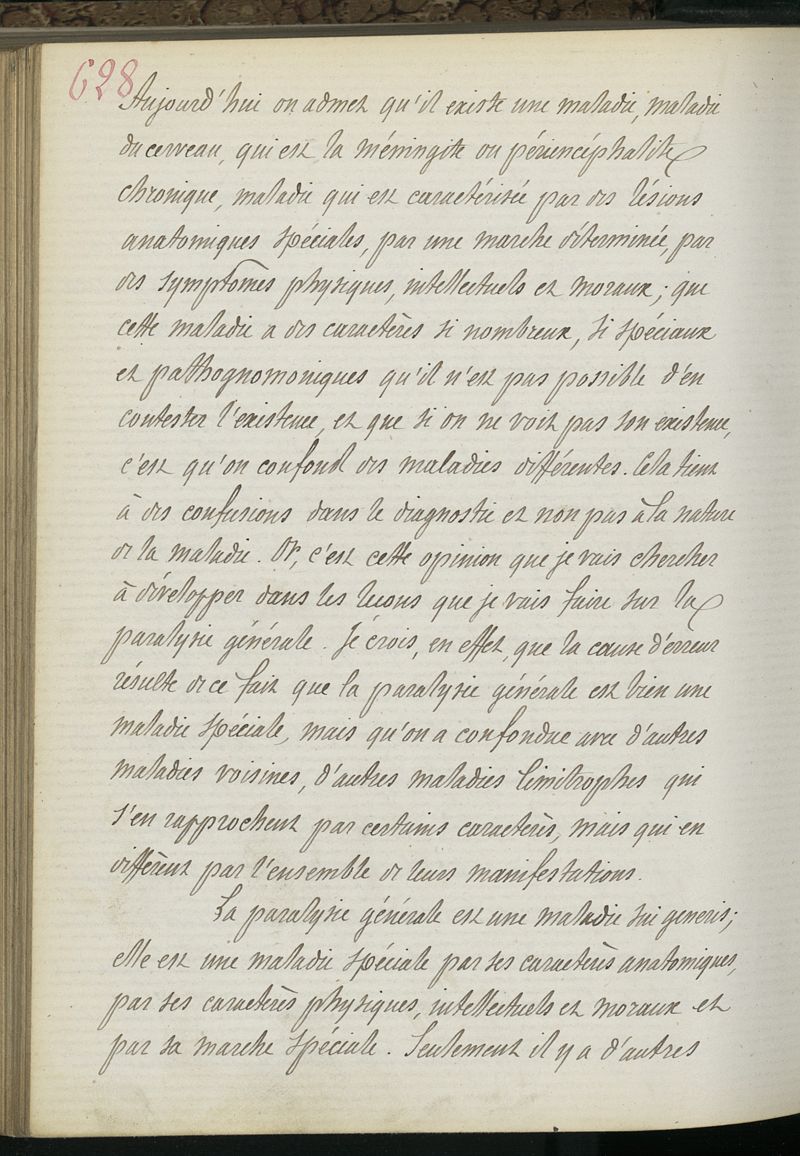 628
Aujourd'hui on admet qu'il existe une maladie, maladie
du cerveau, qui est la méningite ou périencéphalite
chronique, maladie qui est caractérisée par des lésions
anatomiques spéciales, par une marche déterminée, par
des symptômes physiques, intellectuels et moraux; que
cette maladie a des caractères si nombreux, si spéciaux
et pathognomoniques qu'il n'est pas possible d'en
contester l'existence, et que si on ne voit pas son existence,
c'est qu'on confond des maladies différentes. Cela tient
à des confusions dans le diagnostic et non pas à la nature
de la maladie. Or, c'est cette opinion que je vais chercher
à développer dans les leçons que je vais faire sur la
paralysie générale. Je crois, en effet, que la cause d'erreur
résulte de ce fait que la paralysie générale est bien une
maladie spéciale, mais qu'on a confondue avec d'autres
maladies voisines, d'autres maladies limitrophes qui
s'en rapprochent par certains caractères, mais qui en
diffèrent par l'ensemble de leurs manifestations.
La paralysie générale est une maladie sui generis;
elle est une maladie spéciale par ses caractères anatomiques,
par ses caractères physiques, intellectuels et moraux et
par sa marche spéciale. Seulement il y a d'autres